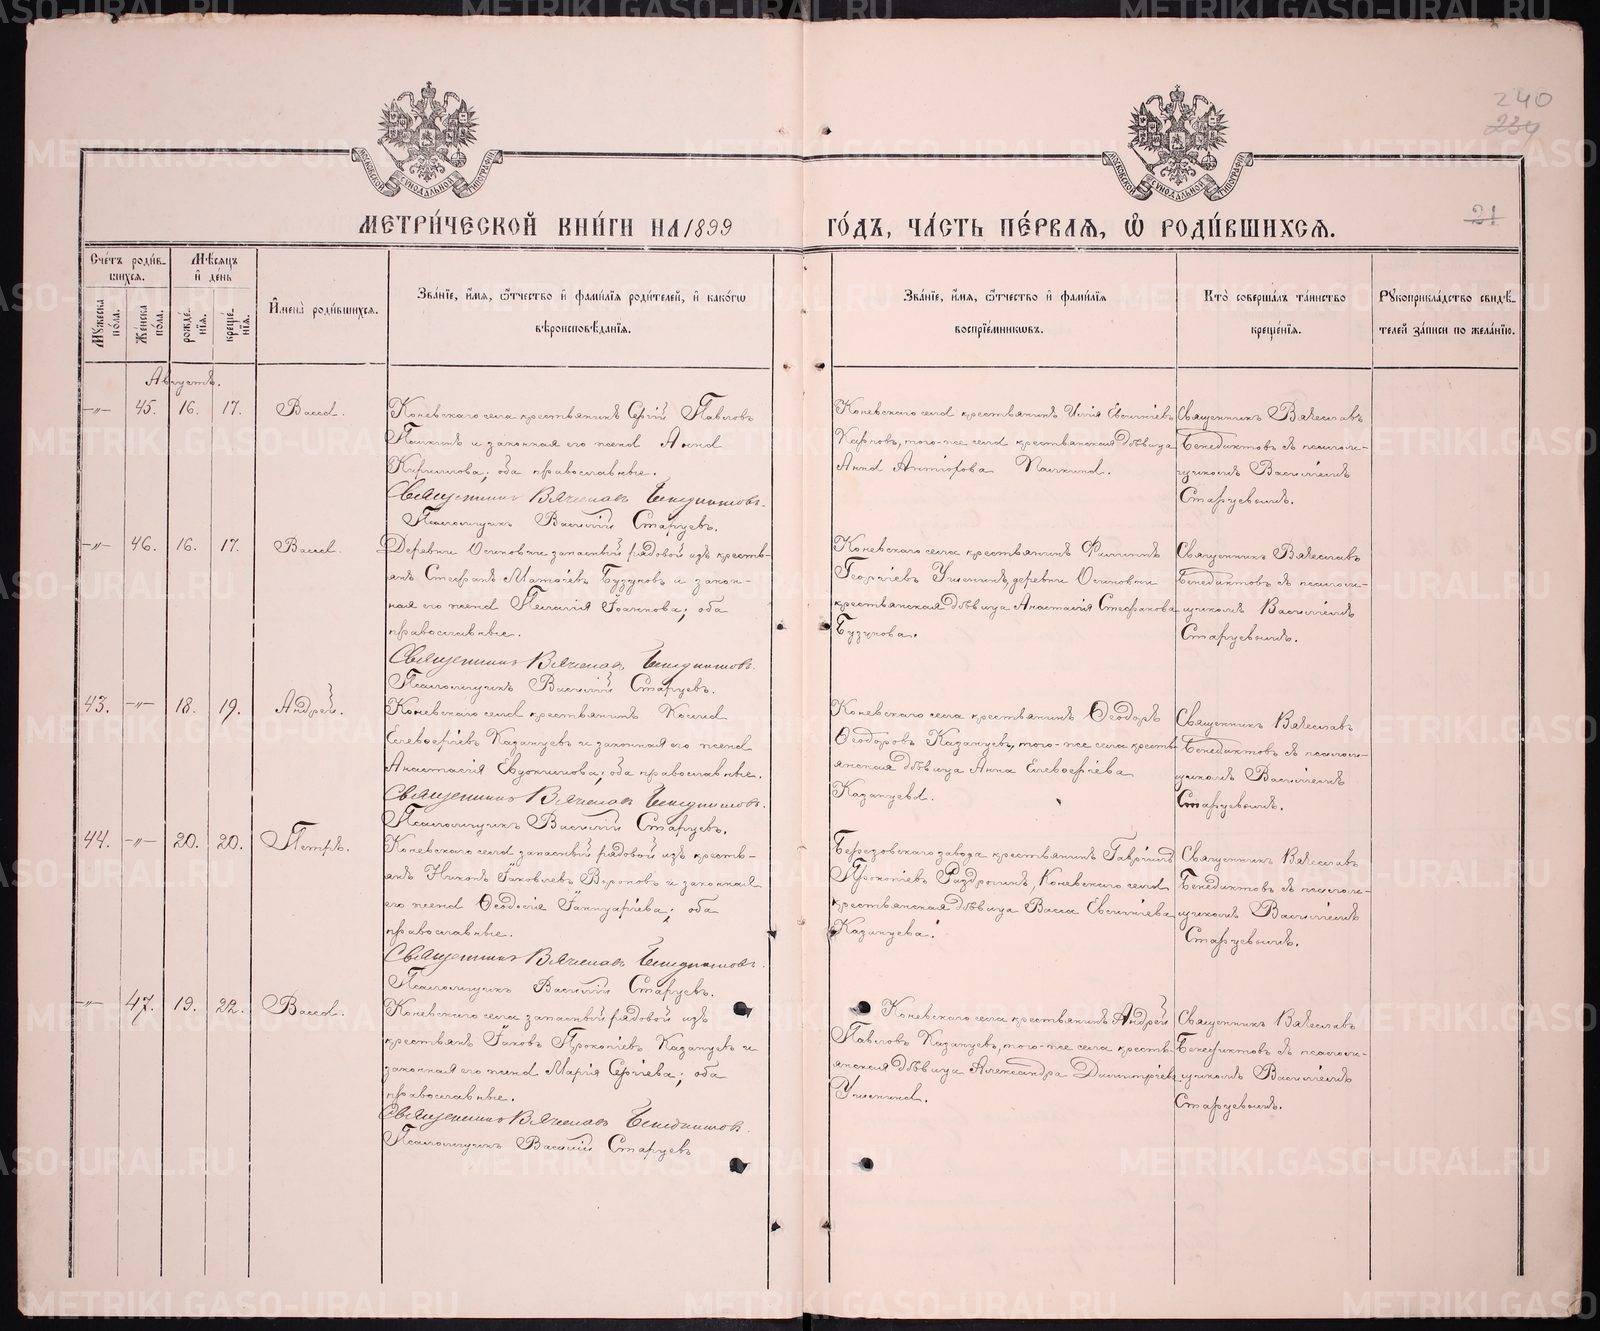 240
234
21
МОСКОВСКОЙ СѴНОДАЛЬНОЙ ТИПОГРАФІИ
МОСКОВСКОЙ СѴНОДАЛЬНОЙ ТИПОГРАФІИ
МЕТРИ́ЧЕСКОЙ КНИ́ГИ НА 1899 ГО́ДЪ, ЧА́СТЬ ПЕ́РВАЯ, Ѡ РОДИ́ВШИХСЯ.
Сче́тъ роди́в-
шихся.
Мѣ́сяцъ
и̂ де́нь
Мꙋ́жеска по́ла.
Же́нска по́ла.
рожде́-
нія.
креще́-
нія.
И̂мена̀ роди́вшихся.
Зва́ніе, и̂́мя, ѻ̂́тчество и̂ фами́лія роди́телей, и̂ како́гѡ
вѣроисповѣ́данія.
Зва́ніе, и̂́мя, ѻ̂́тчество и̂ фами́лія
воспріе́мникѡвъ.
Кто̀ соверша́лъ та́инство
креще́нія.
Рꙋкоприкла́дство свидѣ́-
телей за́писи по жела́нію.
Августъ.
-„- 45. 16. 17. Васса.
Коневскаго села крестьянинъ Сергій Павловъ
Палкинъ и законная его жена Анна
Кириллова; оба православные.
Священникъ Вячеславъ Бенедиктовъ.
Псаломщикъ Василій Старцевъ.
Коневскаго села крестьянинъ Илія Евоиміевъ
Карповъ, того-же села крестьянская дѣвица
Анна Антіохова Палкина.
Священникъ Вячеславъ
Бенедиктовъ съ псалом-
щикомъ Василіемъ
Старцевымъ.
-„- 46. 16. 17. Васса.
Деревни Осиновки запасный рядовой изъ кресть-
янъ Стефанъ Матѳіевъ Бузуновъ и закон-
ная его жена Пелагія Іоаннова; оба
православные.
Священникъ Вячеславъ Бенедиктовъ.
Псаломщикъ Василій Старцевъ.
Коневскаго села крестьянинъ Филиппъ
Георгіевъ деревни Осиновки
крестьянская дѣвица Анастасія Стефанова
Бузунова.
Священникъ Вячеславъ
Бенедиктовъ съ псалом-
щикомъ Василіемъ
Старцевымъ.
43. -„- 18. 19. Андрей.
Коневскаго села крестьянинъ Косма
Елевѳеріевъ Казанцевъ и законная его жена
Анастасія Евдокимова; оба православные.
Священникъ Вячеславъ Бенедиктовъ.
Псаломщикъ Василій Старцевъ.
Коневскаго села крестьянинъ Ѳеодоръ
Ѳеодоровъ Казанцевъ, того-же села кресть-
янская дѣвица Анна Елевѳеріева
Казанцева.
Священникъ Вячеславъ
Бенедиктовъ съ псалом-
щикомъ Василіемъ
Старцевымъ.
44. -„- 20. 20. Петръ.
Коневскаго села запасный рядовой изъ кресть-
янъ Никонъ Іаковлевъ Вороновъ и законная
его жена Ѳеодосія Іаннуаріева; оба
православные.
Священникъ Вячеславъ Бенедиктовъ.
Псаломщикъ Василій Старцевъ.
Березовскаго завода крестьянинъ Гавріилъ
Прокопіевъ Раздрогинъ, Коневскаго села
крестьянская дѣвица Васса Евѳиміева
Казанцева.
Священникъ Вячеславъ
Бенедиктовъ съ псалом-
щикомъ Василіемъ
Старцевымъ.
-„- 47. 19. 22. Васса.
Коневскаго села запасный рядовой изъ
крестьянъ Іаковъ Прокопіевъ Казанцевъ и
законная его жена Марія Сергіева; оба
православные.
Священникъ Вячеславъ Бенедиктовъ.
Псаломщикъ Василій Старцевъ
Коневскаго села крестьянинъ Андрей
Павловъ Казанцевъ, того-же села кресть-
янская дѣвица Александра Димитріева
Священникъ Вячеславъ
Бенедиктовъ съ псалом-
щикомъ Василіемъ
Старцевымъ.
METRIKI.GASO-URAL.RU